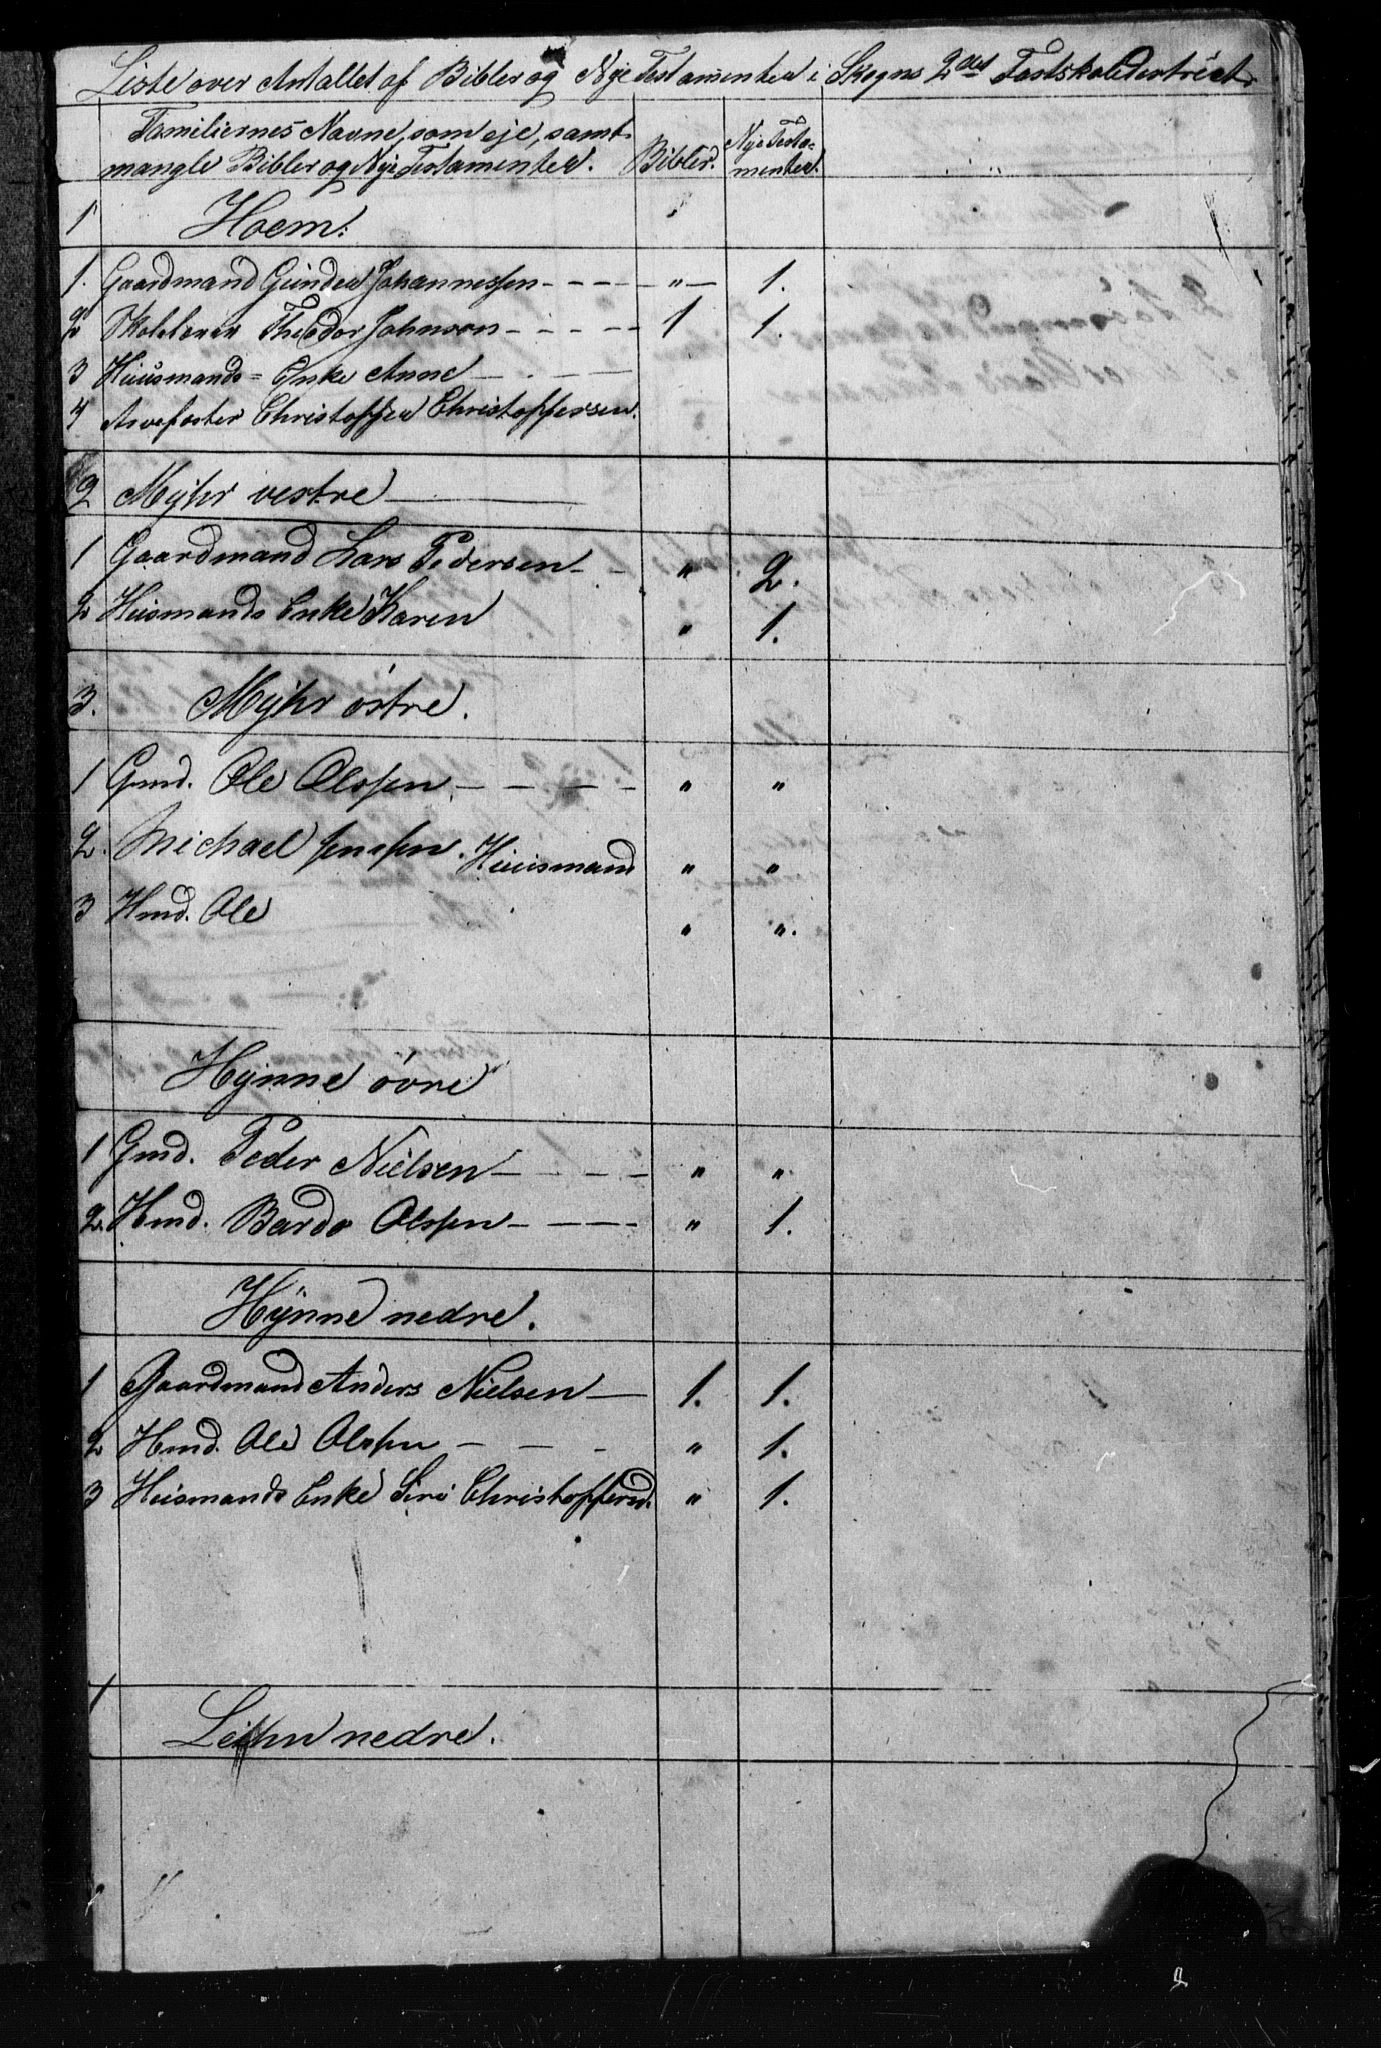 Liste over Antallet af Bibler og Nye Testamenter i Skogns 2det Fastskoledistrict.
Familiernes Navne, som eje, samt Bibler. Nye Testa-
mangle Bibler og Nye Testamenter. menter.
1 Hoem.
1. Gaardmand Gunder Johannessen - - - - " - 1.
2 Skolelærer Theodor Johnson - - - - - 1 1.
3 Huusmands = Enke Anne - - -
4 Christoffer Christoffersen.
2 Myhr vestre
1 Gaardmand Lars Pedersen - - " 2.
2 Huusmands Enke Karen " 1.
3. Myhr östre.
1 Gmd. Ole Olssen - - - - " "
2. Michael Jenssen. Huusmand " "
3 Hmd. Ole " ".
Hynne övre
1 Gmd. Peder Nielsen - - - - " "
2. Hmd. Bardo Olssen - - - - " 1.
Hynne nedre.
1 Gaardmand Anders Nielsen - 1. 1.
2 Hmd. Ole Olssen - - - " 1.
3 Huusmands Enke Siri Christofferd. " 1.
1
nedre.